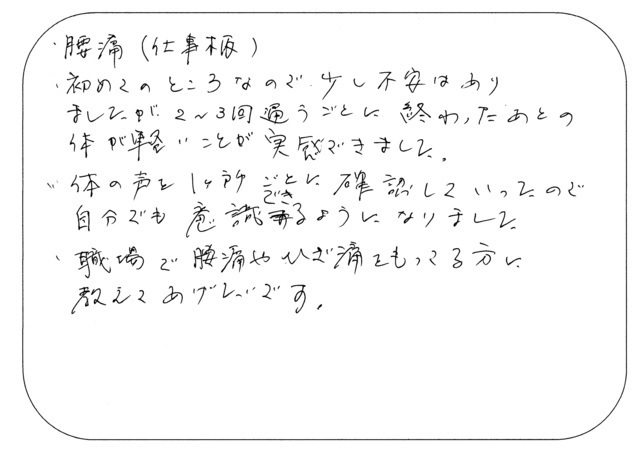 ・腰痛（仕事柄）
・初めてのところなので、少し不安はあり
ましたが 2～3回通うごとに 終わったあとの
体が軽いことが実感できました。
・体の声を1ヶ所ごとに確認していったので
自分でも意識できるようになりました
・職場で腰痛やひざ痛をもってる方に
教えてあげたいです。